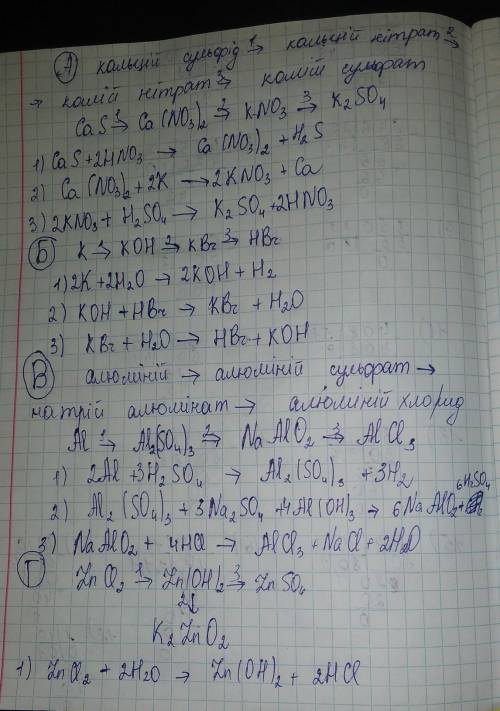 А кальцій сульфід 1→ кальцій нітрат 2→
→ калій нітрат 3→ калій сульфат
CaS 1→ Ca(NO3)2 2→ KNO3 3→ K2SO4
1) CaS+2HNO3 → Ca(NO3)2 + H2S
2) Ca(NO3)2+2K → 2KNO3 + Ca
3) 2KNO3 + H2SO4 → K2SO4+2HNO3
Б K 1→ KOH 2→ KBr 3→ HBr
1) 2K+2H2O → 2KOH + H2
2) KOH + HBr → KBr + H2O
3) KBr + H2O → HBr + KOH
В алюміній → алюміній сульфат →
натрій алюмінат → алюміній хлорид
Al 1→ Al2(SO4)3 2→ NaAlO2 3→ AlCl3
1) 2Al+3H2SO4 → Al2(SO4)3 +3H2
2) Al2(SO4)3 + 3Na2SO4 +4Al(OH)3 → 6NaAlO2+ 6H2SO4
3) NaAlO2 + 4HCl → AlCl3 + NaCl + 2H2O
Г ZnCl2 1→ Zn(OH)2 3→ ZnSO4
2↓
K2ZnO2
1) ZnCl2 + 2H2O → Zn(OH)2 + 2HCl